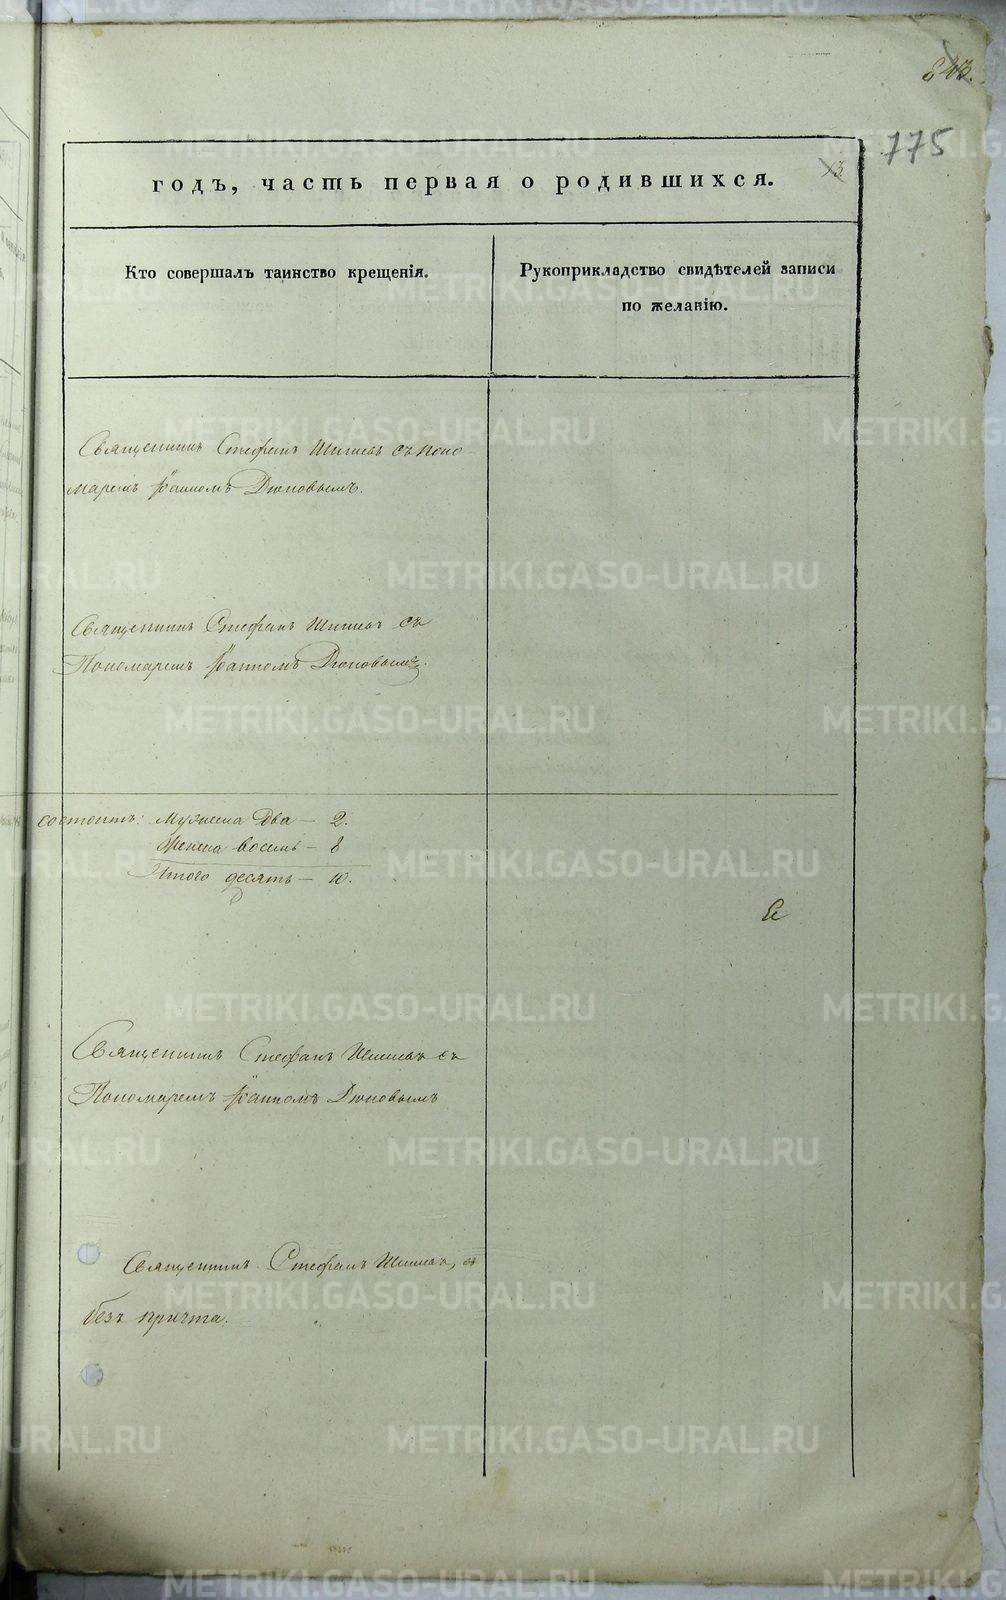 775
3
годъ, часть первая о родившихся.
Кто совершалъ таинство крещенія.
Рукоприкладство свидѣтелей записи
по желанію.
Священникъ Стефанъ Шишевъ съ поно
маремъ Іоанномъ Дюповымъ.
Священникъ Стефанъ Шишевъ съ
Пономаремъ Іоанномъ Дюповымъ.
состоитъ: Мужеска два – 2.
Женска восемь – 8
Итого десять – 10.
Священникъ Стефанъ Шишевъ съ
Пономаремъ Іоанномъ Дюповымъ
Священникъ Стефанъ Шишевъ,
безъ причта.
METRIKI.GASO-URAL.RU